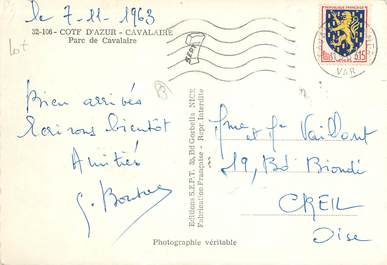 le 7-11-1963
32-106 - COTE D'AZUR - CAVALAIRE
Parc de Cavalaire
Bien arrivés
Ecrirons bientôt
Amitiés
Editions S.E.P.T. Bd Gorbella NICE
Fabrication Française - Repr. Interdite
SEPT
REPUBLIQUE FRANÇAISE
0,15
VAR
et Vaillant
19, Bd Biondi
CREIL
Oise
Photographie véritable